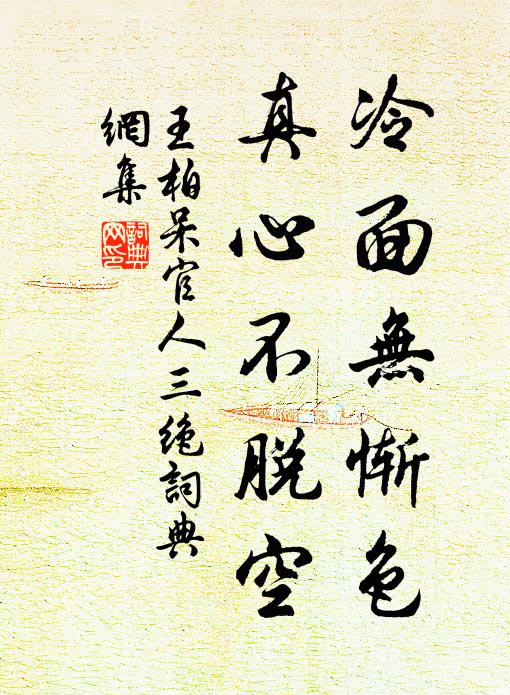 冷面無慚色
真心不脫空
王柏呆官人三絕詞典
網集
詞典
网印